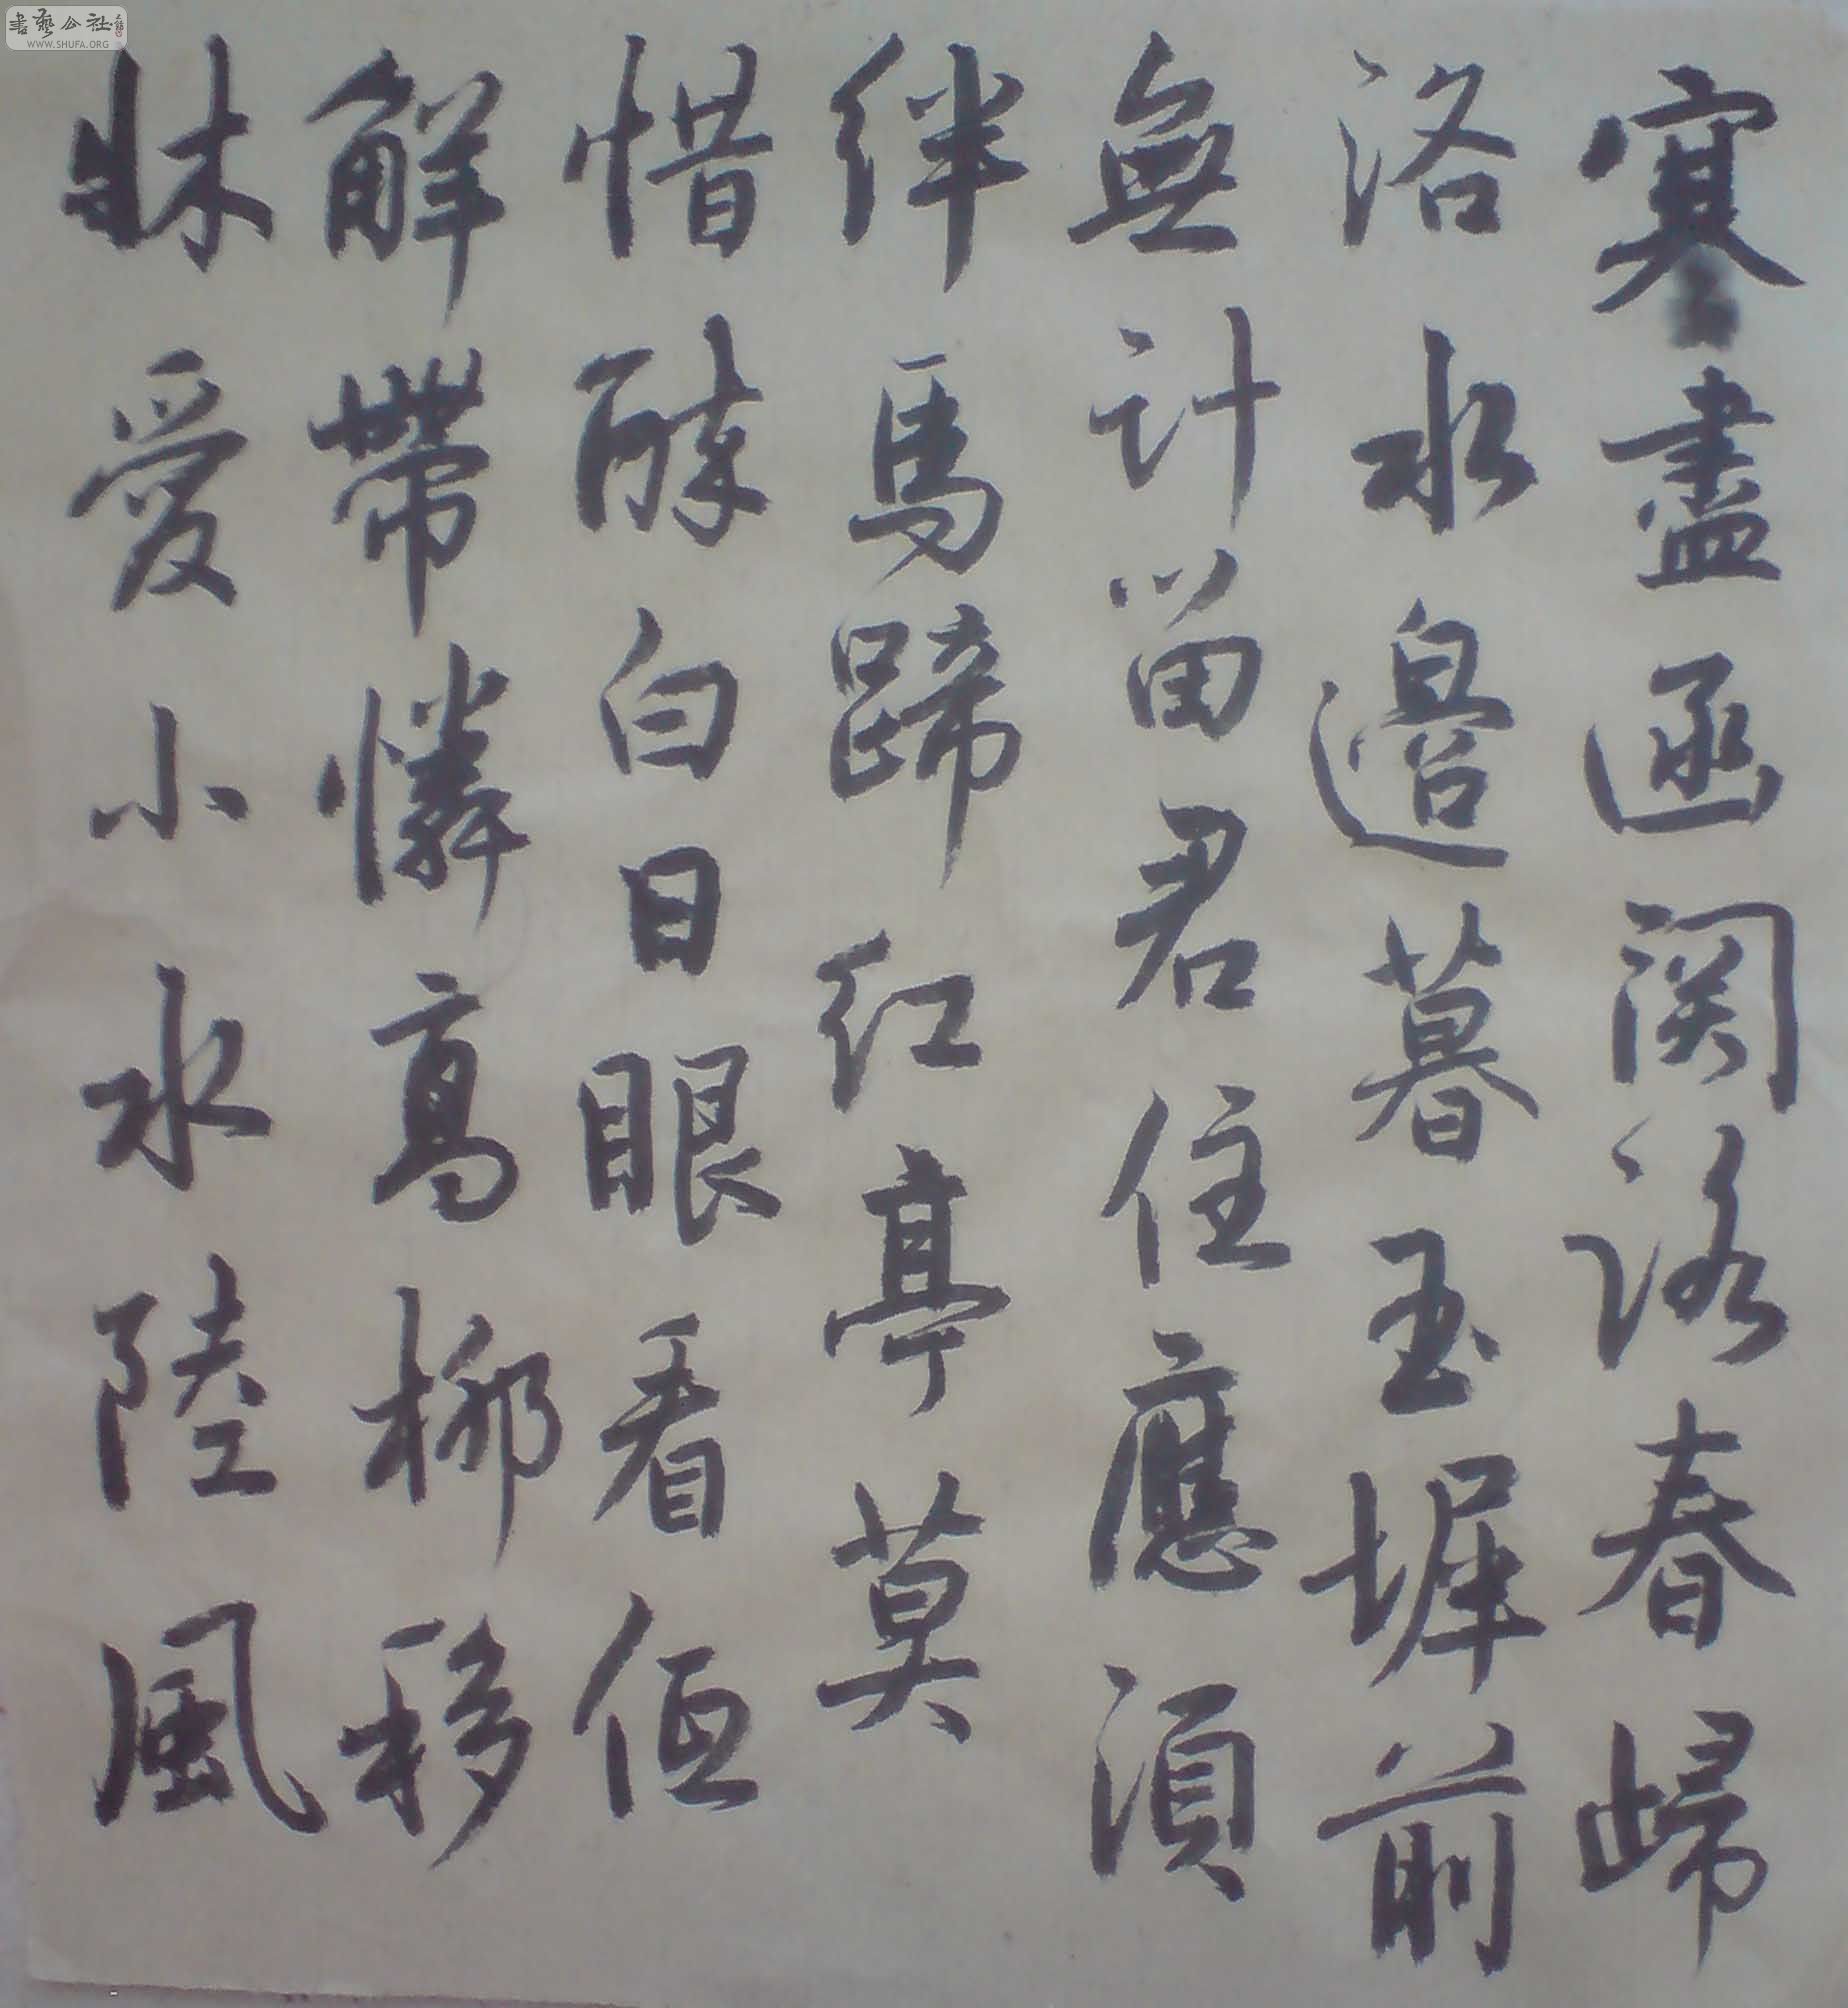 書藝公社
WWW.SHUFA.ORG
寒盡函関路春歸
洛水邊暮玉墀前
無計留君住應須
絆馬蹄紅亭莫
惜醉白日眼看低
解帶憐高柳移
牀愛小水陸風